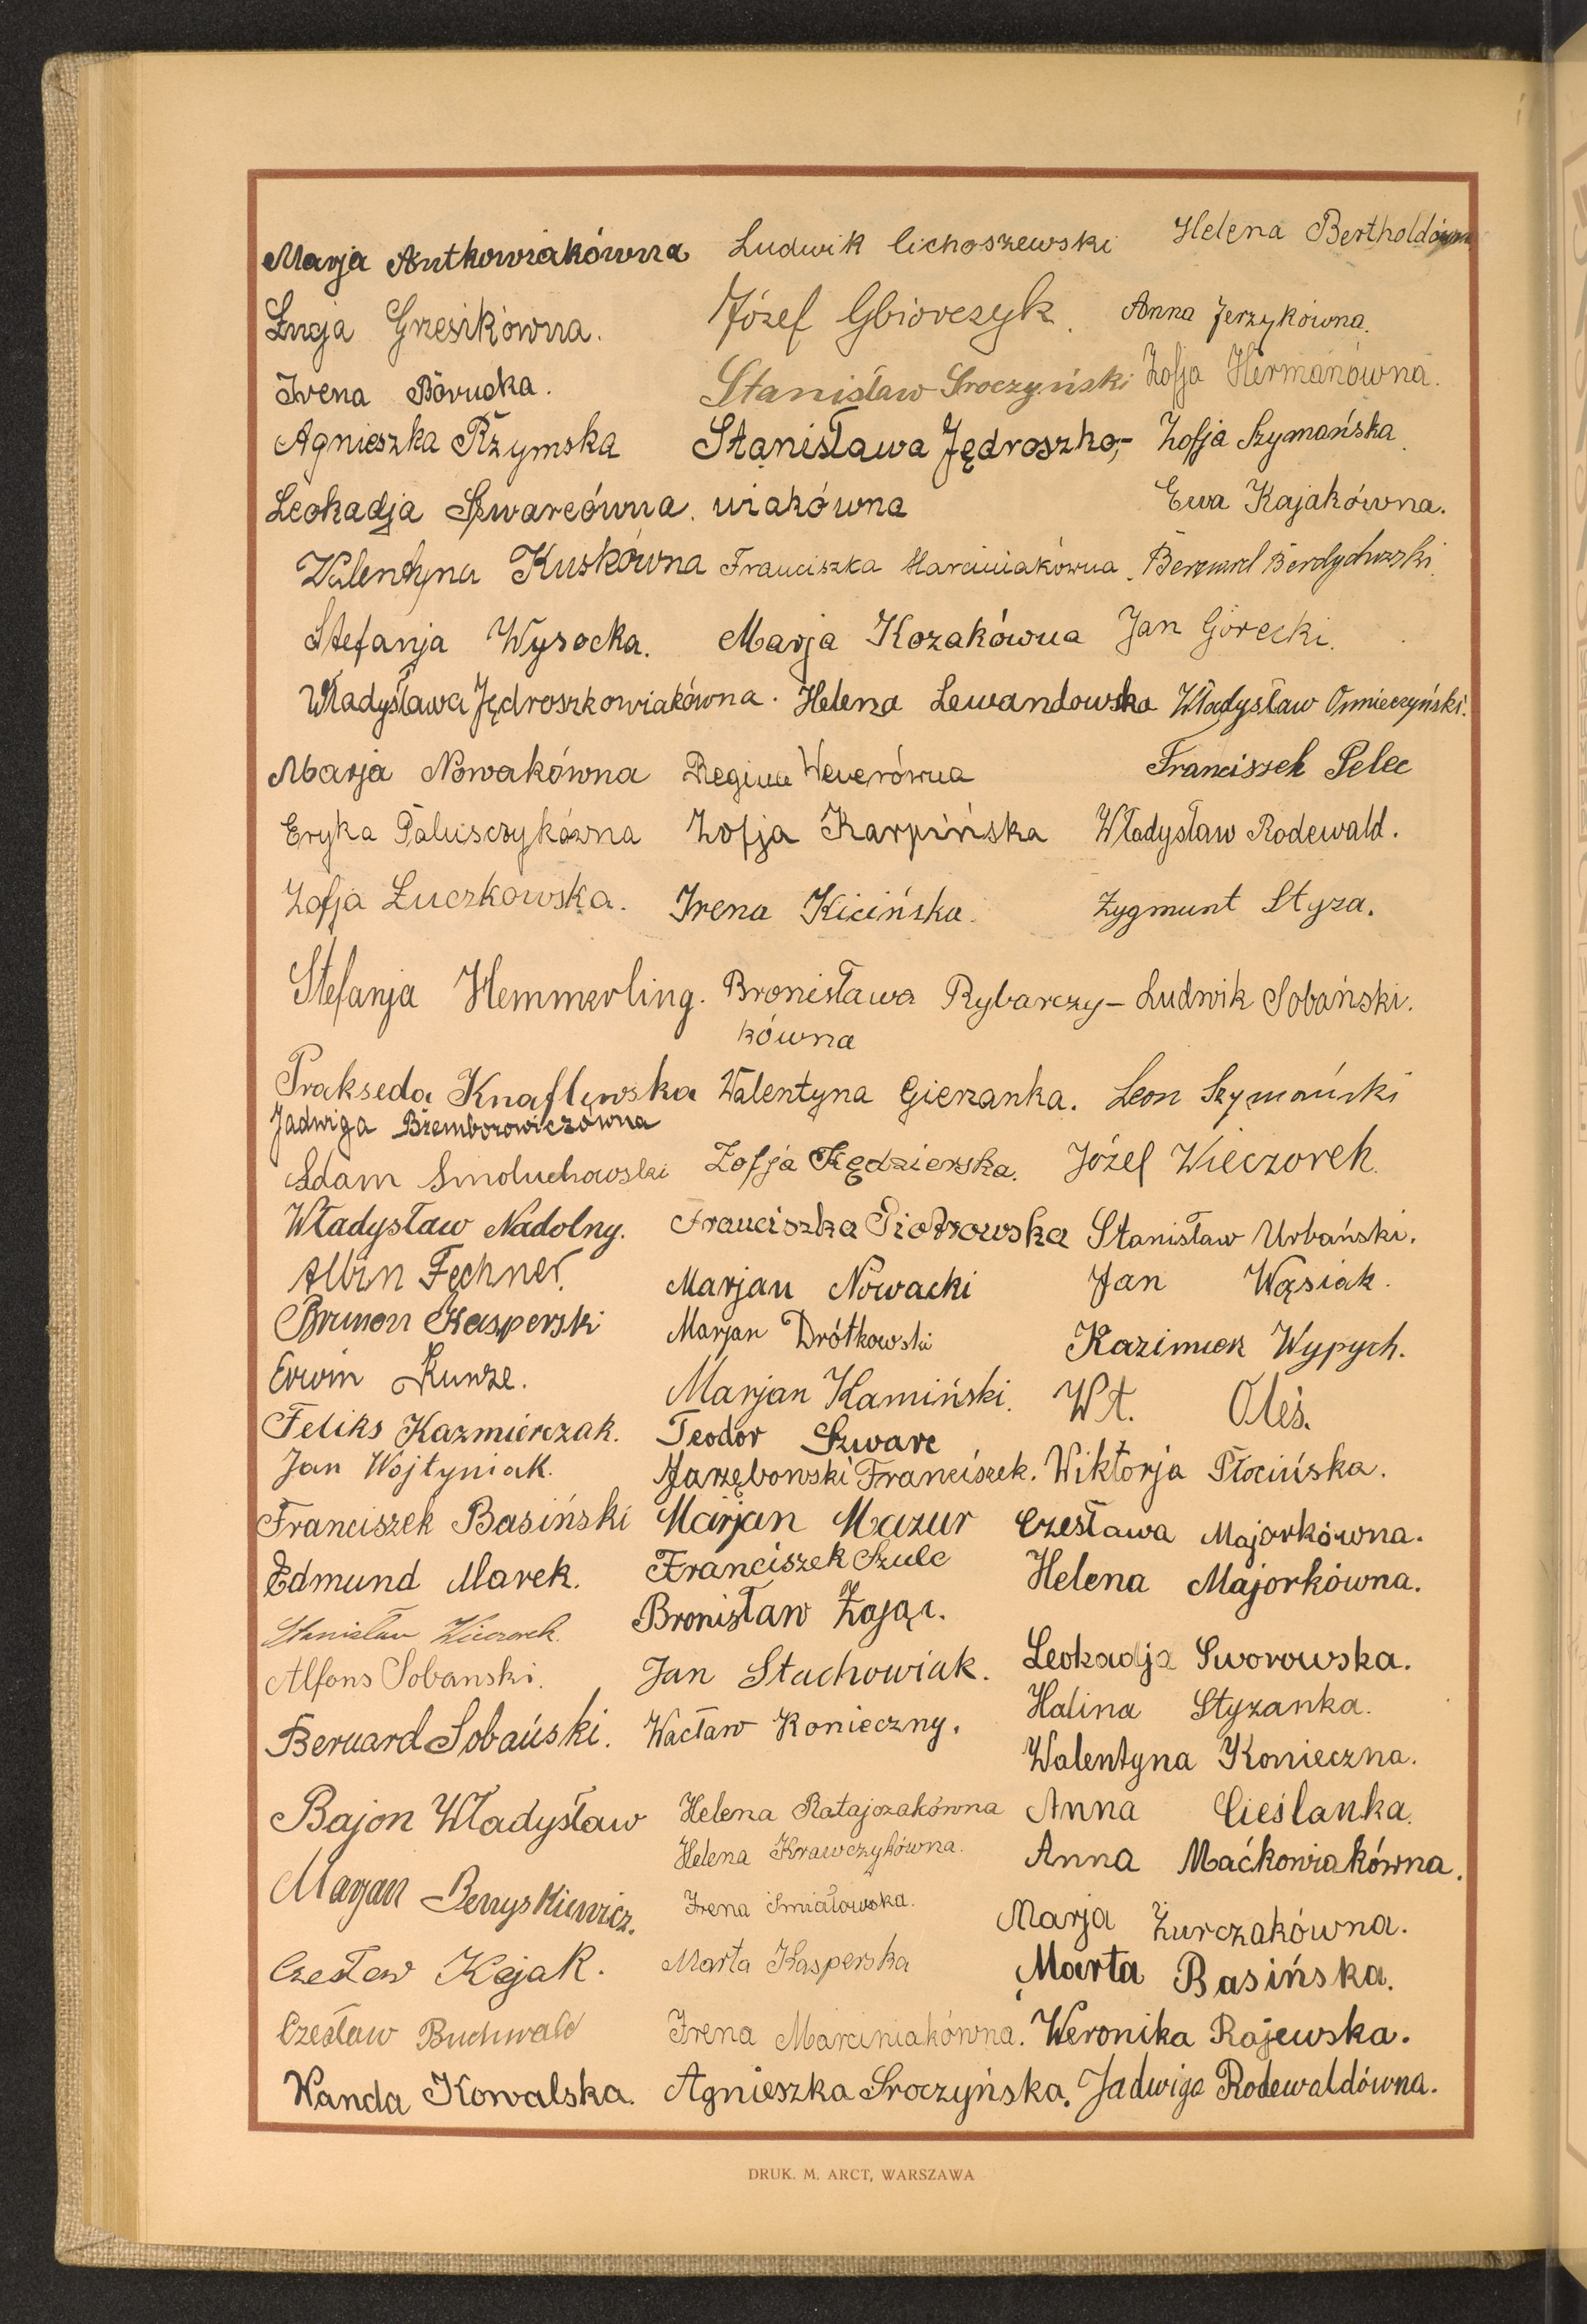 Marja Antkowiakówna Ludwik Cichoszewski Helena Bertholdówna
Łucja Grzesikówna. Józef Gbiorczyk. Anna Jerzykówna.
Irena Borucka. Stanisław Sroczyński Zofja Hermanówna.
Agnieszka Rzymska Stanisława Jędroszko,- Zofja Szymańska.
Leokadja Szwarcówna. wiakówna Ewa Kajakówna.
Walentyna Kuskówna Franciszka Marciniakówna. Bernard Berdychowski.
Stefanja Wysocka. Marja Kozakówna Jan Górecki.
Władysława Jędroszkowiakówna. Helena Lewandowska Władysław Osmieczyński.
Marja Nowakówna Regina Weverówna Franciszek Pelec
Eryka Palusczykówna Zofja Karpińska Władysław Rodewald.
Zofja Łuczkowska. Irena Kicińska. Zygmunt Styza.
Stefanja Hemmerling. Bronisława Rybarczy- Ludwik Sobański.
kówna
Prakseda Knaflewska Walentyna Gierzanka. Leon Szymański
Jadwiga Bremborowiczówna
Adam Smoluchowski Zofja Kędzierska. Józef Wieczorek.
Władysław Nadolny. Franciszka Piotrowska Stanisław Urbański.
Albin Fechner. Marjan Nowacki Jan Wąsiak.
Brunon Kasperski Marjan Drótkowski Kazimierz Wypych.
Erwin Kunze. Marjan Kamiński. Wł. Oleś.
Feliks Kazmierczak. Teodor Szwarc
Jan Wojtyniak. Jarzębowski Franciszek. Wiktorja Płocińska.
Franciszek Basiński Marjan Mazur Czesława Majorkówna.
Edmund Marek. Franciszek Szulc Helena Majorkówna.
Stanisław Wieczorek. Bronisław Zając.
Alfons Sobanski. Jan Stachowiak. Leokadja Sworowska.
Bernard Sobański. Wacław Konieczny. Halina Styzanka.
Walentyna Konieczna.
Bajon Władysław Helena Ratajczakówna Anna Cieślanka.
Helena Krawczykówna. Anna Maćkowiakówna.
Marjan Irena Smiałowska. Marja Żurczakówna.
Czesław Kajak. Marta Kasperska Marta Basińska.
Czesław Buchwald Irena Marciniakówna. Weronika Rajewska.
Wanda Kowalska. Agnieszka Sroczyńska. Jadwiga Rodewaldówna.
DRUK. M. ARCT, WARSZAWA